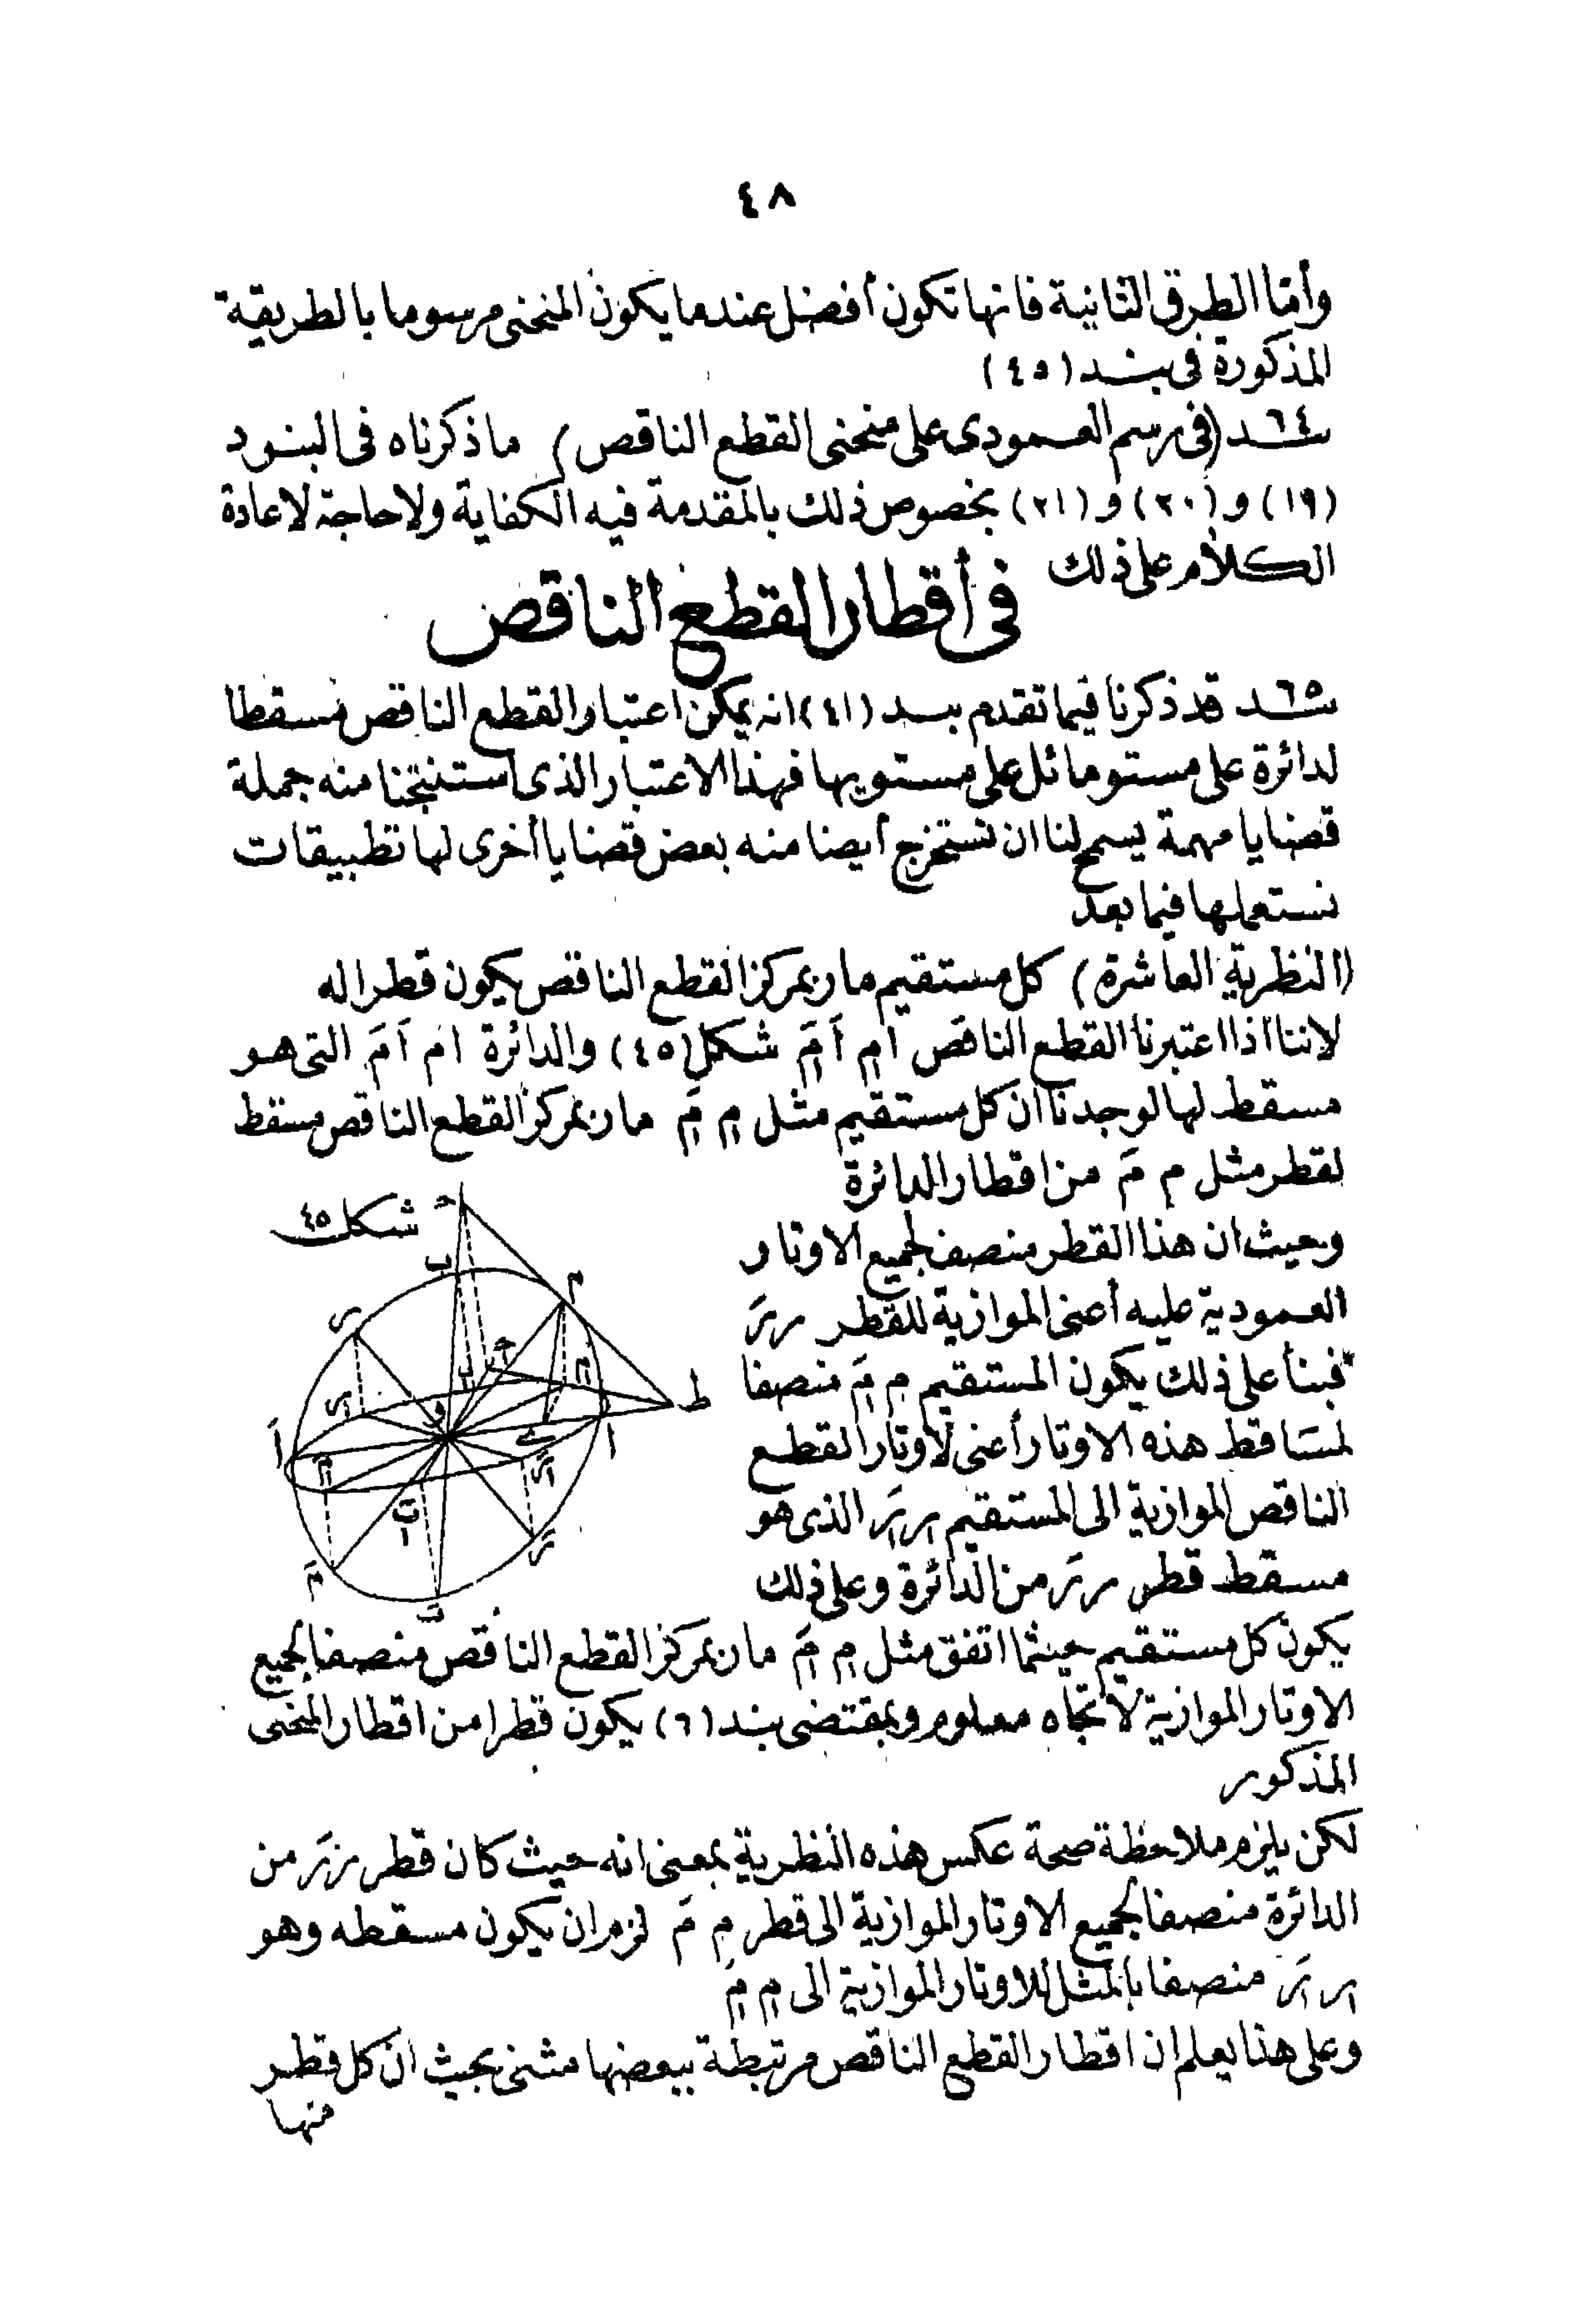 ٤٨
وأما الطرق الثانية فانها تكون أفضل عندما يكون المنحنى مرسوما بالطريقة
المذكورة فى بند (٤٥)
بند ٦٤ (فى رسم العمودى على منحنى القطع الناقص) ما ذكرناه فى البنود
(١٩) و (٢٠) و (٢١) بخصوص ذلك بالمقدمة فيه الكفاية ولا حاجة لاعادة
الكلام على ذلك
فى أقطار القطع الناقص
بند ٦٥ قد ذكرنا فيما تقدم ببند (٤١) انه يمكن اعتبار القطع الناقص مسقطا
لدائرة على مستو مائل على مستويها فهذا الاعتبار الذى استنتجنا منه جملة
قضايا مهمة يسمح لنا ان نستخرج أيضا منه بعض قضايا أخرى لها تطبيقات
نستعملها فيما بعد
(النظرية العاشرة) كل مستقيم مار بمركز القطع الناقص يكون قطرا له
لاننا اذا اعتبرنا القطع الناقص ام اَ مَ شكل (٤٥) والدائرة ام اَ مَ التى هو
مسقط لها لوجدنا ان كل مستقيم مثل م مَ مار بمركز القطع الناقص مسقط
لقطر مثل م مَ من اقطار الدائرة
وحيث ان هذا القطر منصف لجميع الاوتار
العمودية عليه أعنى الموازية للقطر ر رَ
فبنأ على ذلك يكون المستقيم م مَ منصفا
لمساقط هذه الاوتار أعنى لاوتار القطع
الناقص الموازية الى المستقيم ر رَ الذى هو
مسقط قطر ر رَ من الدائرة وعلى ذلك
شكل ٤٥
ح
ب
م
ر
ح
ب
م
ط
ر
و
اَ
ا
ى
م
رَ
بَ
رَ
مَ
بَ
يكون كل مستقيم حيثما اتفق مثل م مَ مار بمركز القطع الناقص منصفا لجميع
الاوتار الموازية لاتجاه معلوم وبمقتضى بند (٦) يكون قطرا من اقطار المنحنى
المذكور
لكن يلزم ملاحظة صحة عكس هذه النظرية بمعنى انه حيث كان قطر ر رَ من
الدائرة منصفا لجميع الاوتار الموازية الى قطر م مَ لزم ان يكون مسقطه وهو
ر رَ منصفا بالمثل للاوتار الموازية الى م مَ
وعلى هذا يعلم ان اقطار القطع الناقص مرتبطة ببعضها مثنى بحيث ان كل قطر
منها